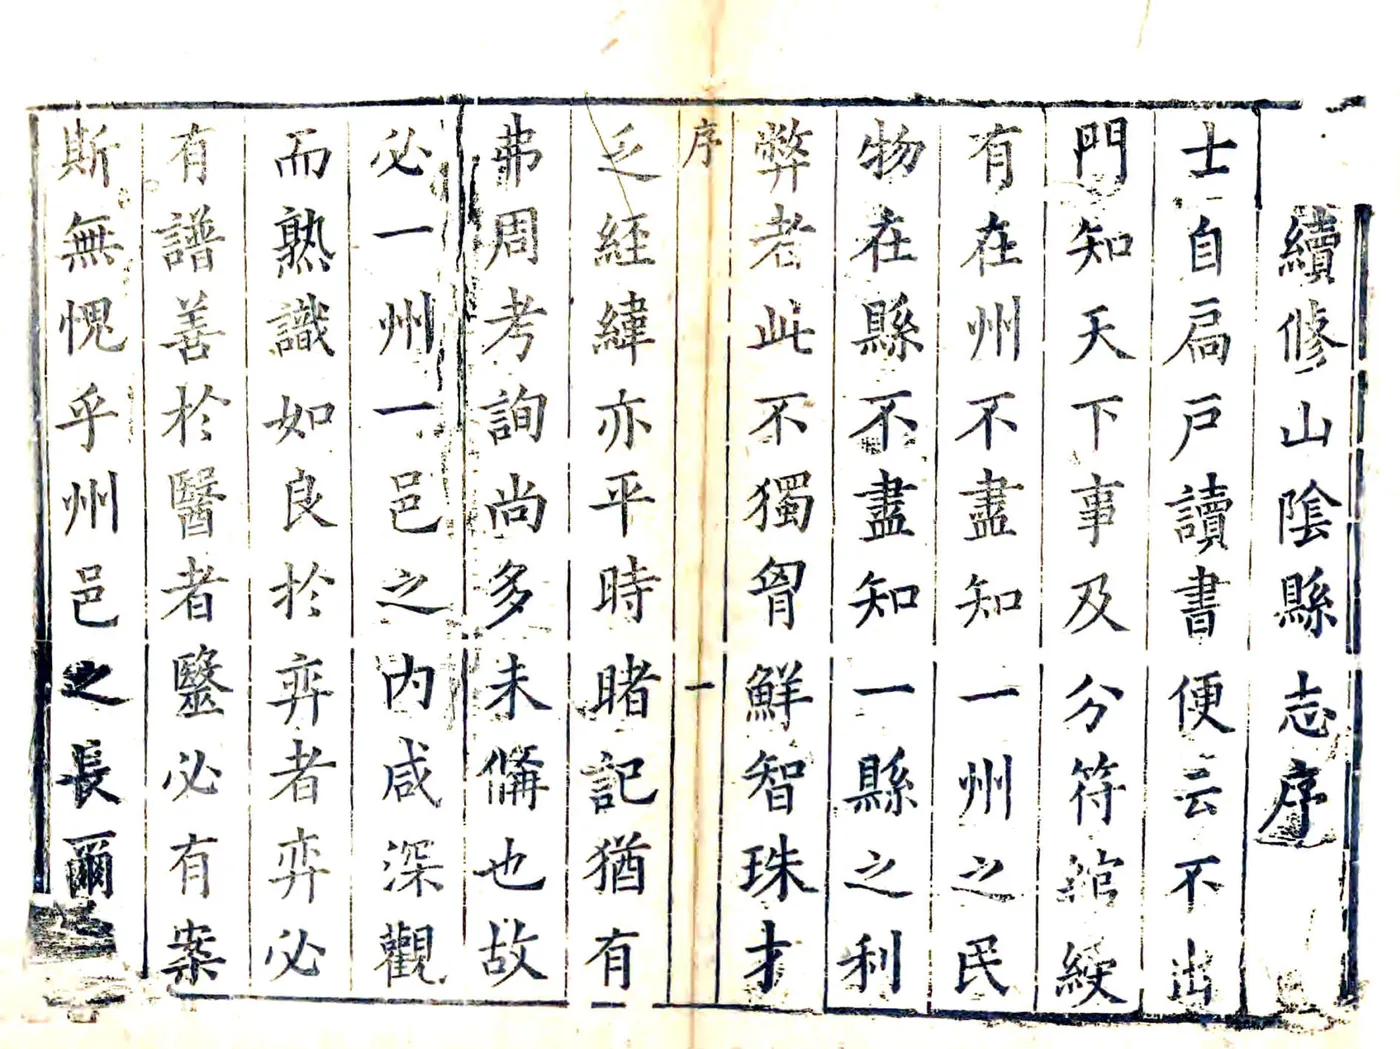 續修山隂縣志序
士自扃戶讀書便云不出
門知天下事及分符綰綬
有在州不盡知一州之民
物在縣不盡知一縣之利
弊者此不獨胷鮮智珠才
序 一
乏經緯亦平時睹記猶有
弗周考詢尚多未備也故
必一州一邑之内咸深觀
而熟識如良於弈者弈必
有譜善於醫者醫必有案
斯無愧乎州邑之長爾